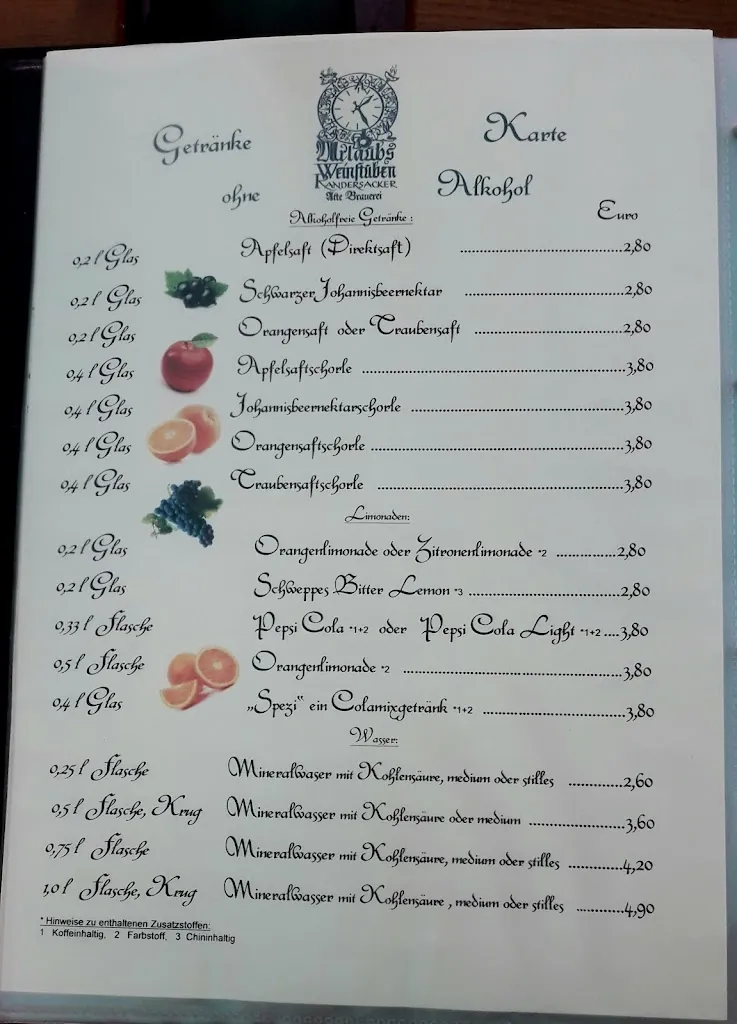 Getränke Karte
ohne Alkohol
Urlaubs
Weinstuben
Randersacker
Alte Brauerei
Alkoholfreie Getränke :
Euro
0,2 l Glas Apfelsaft (Direktsaft) ..........2,80
0,2 l Glas Schwarzer Johannisbeernektar ..........2,80
0,2 l Glas Orangensaft oder Traubensaft ..........2,80
0,4 l Glas Apfelsaftschorle ..........3,80
0,4 l Glas Johannisbeernektarschorle ..........3,80
0,4 l Glas Orangensaftschorle ..........3,80
0,4 l Glas Traubensaftschorle ..........3,80
Limonaden:
0,2 l Glas Orangenlimonade oder Zitronenlimonade *2 ..........2,80
0,2 l Glas Schweppes Bitter Lemon *3 ..........2,80
0,33 l Flasche Pepsi Cola *1+2 oder Pepsi Cola Light *1+2 ....3,80
0,5 l Flasche Orangenlimonade *2 ..........3,80
0,4 l Glas „Spezi“ ein Colamixgetränk *1+2 ..........3,80
Wasser:
0,25 l Flasche Mineralwaser mit Kohlensäure, medium oder stilles ..........2,60
0,5 l Flasche, Krug Mineralwasser mit Kohlensäure oder medium ..........3,60
0,75 l Flasche Mineralwasser mit Kohlensäure, medium oder stilles ..........4,20
1,0 l Flasche, Krug Mineralwasser mit Kohlensäure , medium oder stilles ..........4,90
* Hinweise zu enthaltenen Zusatzstoffen:
1 Koffeinhaltig, 2 Farbstoff, 3 Chininhaltig